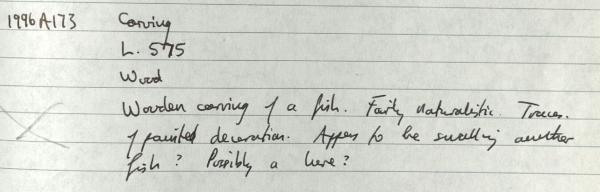 1996A173 Carving
L. 575
Wood
Wooden carving of a fish. Fairly naturalistic. Traces.
of painted decoration. Appears to be swallowing another
fish? Possibly a lure?